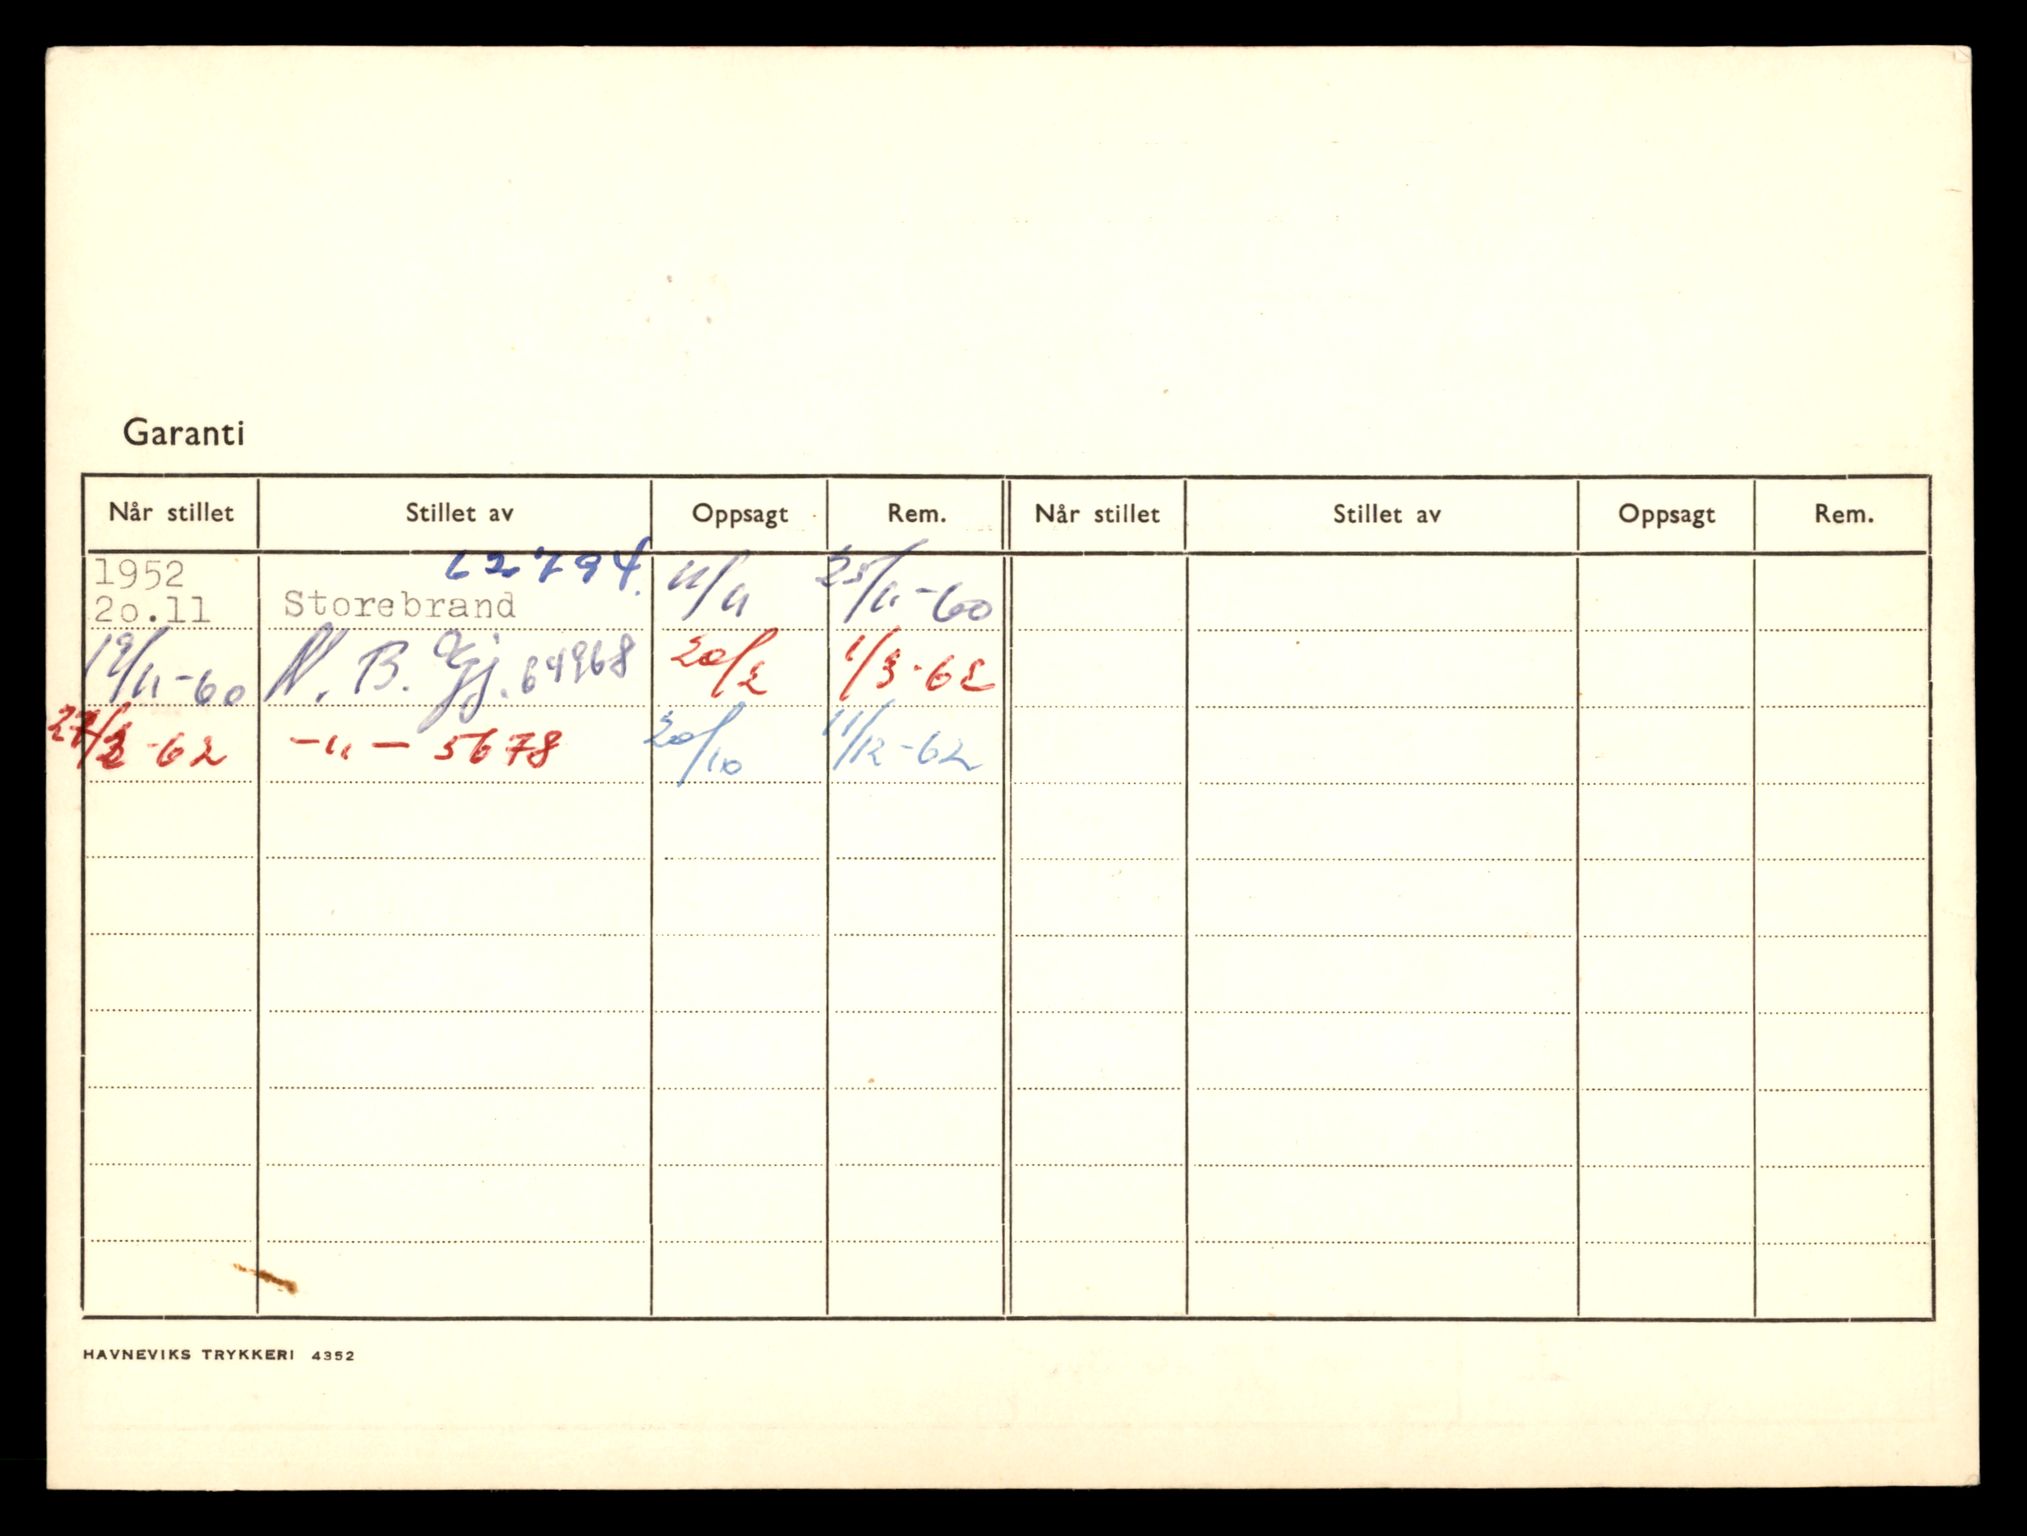 Garanti
Når stillet Stillet av Oppsagt Rem. Når stillet Stillet av Oppsagt Rem.
1952 62794.
20.11 Storebrand 11/11 25/11-60
19/11-60 N. B. Gj. 64968 20/2 1/3-62
-62 -"- 5678 20/10 11/12-62
HAVNEVIKS TRYKKERI 4352